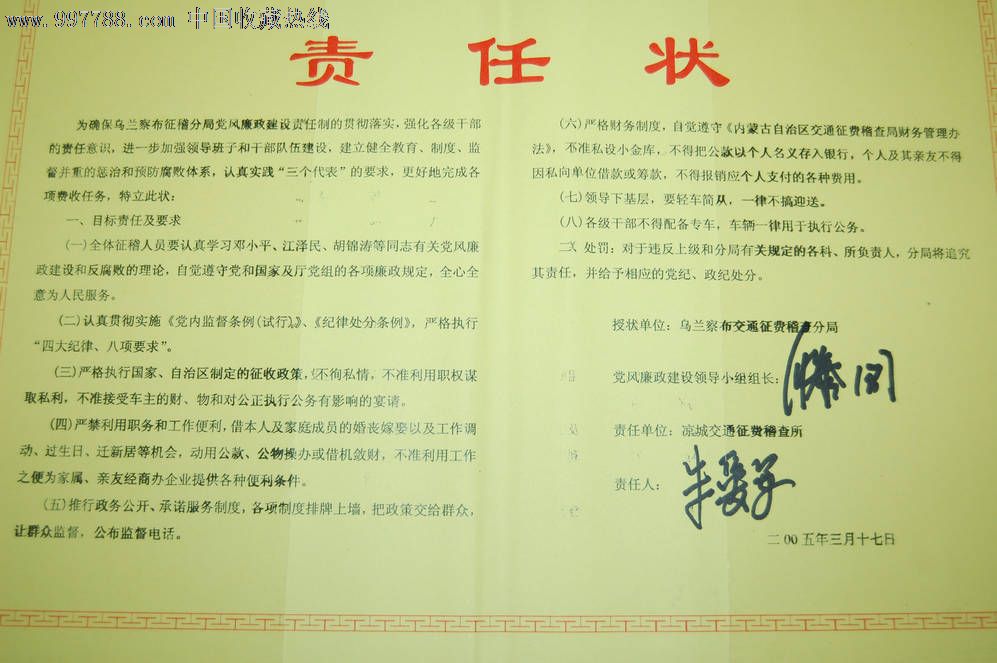 www.997788.com 中国收藏热线
责任状
为确保乌兰察布征稽分局党风廉政建设责任制的贯彻落实，强化各级干部
的责任意识，进一步加强领导班子和干部队伍建设，建立健全教育、制度、监
督并重的惩治和预防腐败体系，认真实践“三个代表”的要求，更好地完成各
项费收任务，特立此状：
一、目标责任及要求
(一)全体征稽人员要认真学习邓小平、江泽民、胡锦涛等同志有关党风廉
政建设和反腐败的理论，自觉遵守党和国家及厅党组的各项廉政规定，全心全
意为人民服务。
(二)认真贯彻实施《党内监督条例(试行)》、《纪律处分条例》，严格执行
“四大纪律、八项要求”。
(三)严格执行国家、自治区制定的征收政策，不徇私情，不准利用职权谋
取私利，不准接受车主的财、物和对公正执行公务有影响的宴请。
(四)严禁利用职务和工作便利，借本人及家庭成员的婚丧嫁娶以及工作调
动、过生日、迁新居等机会，动用公款、公物操办或借机敛财，不准利用工作
之便为家属、亲友经商办企业提供各种便利条件。
(五)推行政务公开、承诺服务制度，各项制度排牌上墙，把政策交给群众，
让群众监督，公布监督电话。
(六)严格财务制度，自觉遵守《内蒙古自治区交通征费稽查局财务管理办
法》，不准私设小金库，不得把公款以个人名义存入银行，个人及其亲友不得
因私向单位借款或筹款，不得报销应个人支付的各种费用。
(七)领导下基层，要轻车简从，一律不搞迎送。
(八)各级干部不得配备专车，车辆一律用于执行公务。
二、处罚：对于违反上级和分局有关规定的各科、所负责人，分局将追究
其责任，并给予相应的党纪、政纪处分。
授状单位：乌兰察布交通征费稽查分局
党风廉政建设领导小组组长：
责任单位：凉城交通征费稽查所
责任人：
二00五年三月十七日